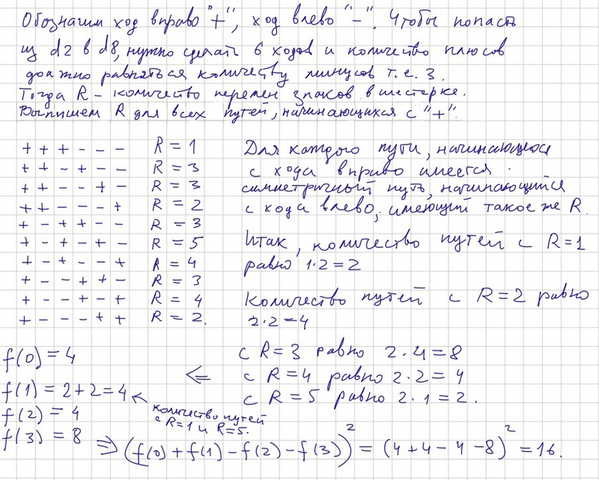 Обозначим ход вправо "+", ход влево "-". Чтобы попасть
из d2 в d8, нужно сделать 6 ходов и количество плюсов
должно равняться количеству минусов т.е. 3.
Тогда R - количество перемен знаков в шестерке.
Выпишем R для всех путей, начинающихся с "+".
+ + + - - - R = 1
+ + - + - - R = 3
+ + - - + - R = 3
+ + - - - + R = 2
+ - + + - - R = 3
+ - + - + - R = 5
+ - + - - + R = 4
+ - - + + - R = 3
+ - - + - + R = 4
+ - - - + + R = 2.
Для каждого пути, начинающегося
с хода вправо имеется
симметричный путь, начинающийся
с хода влево, имеющий такое же R.
Итак, количество путей с R=1
равно 1·2=2
Количество путей с R=2 равно
2·2=4
с R=3 равно 2·4=8
с R=4 равно 2·2=4
с R=5 равно 2·1=2.
⇐
f(0) = 4
f(1) = 2+2=4
количество путей
с R=1 и R=5.
f(2) = 4
f(3) = 8 ⇒ (f(0)+f(1)-f(2)-f(3))² = (4+4-4-8)² = 16.